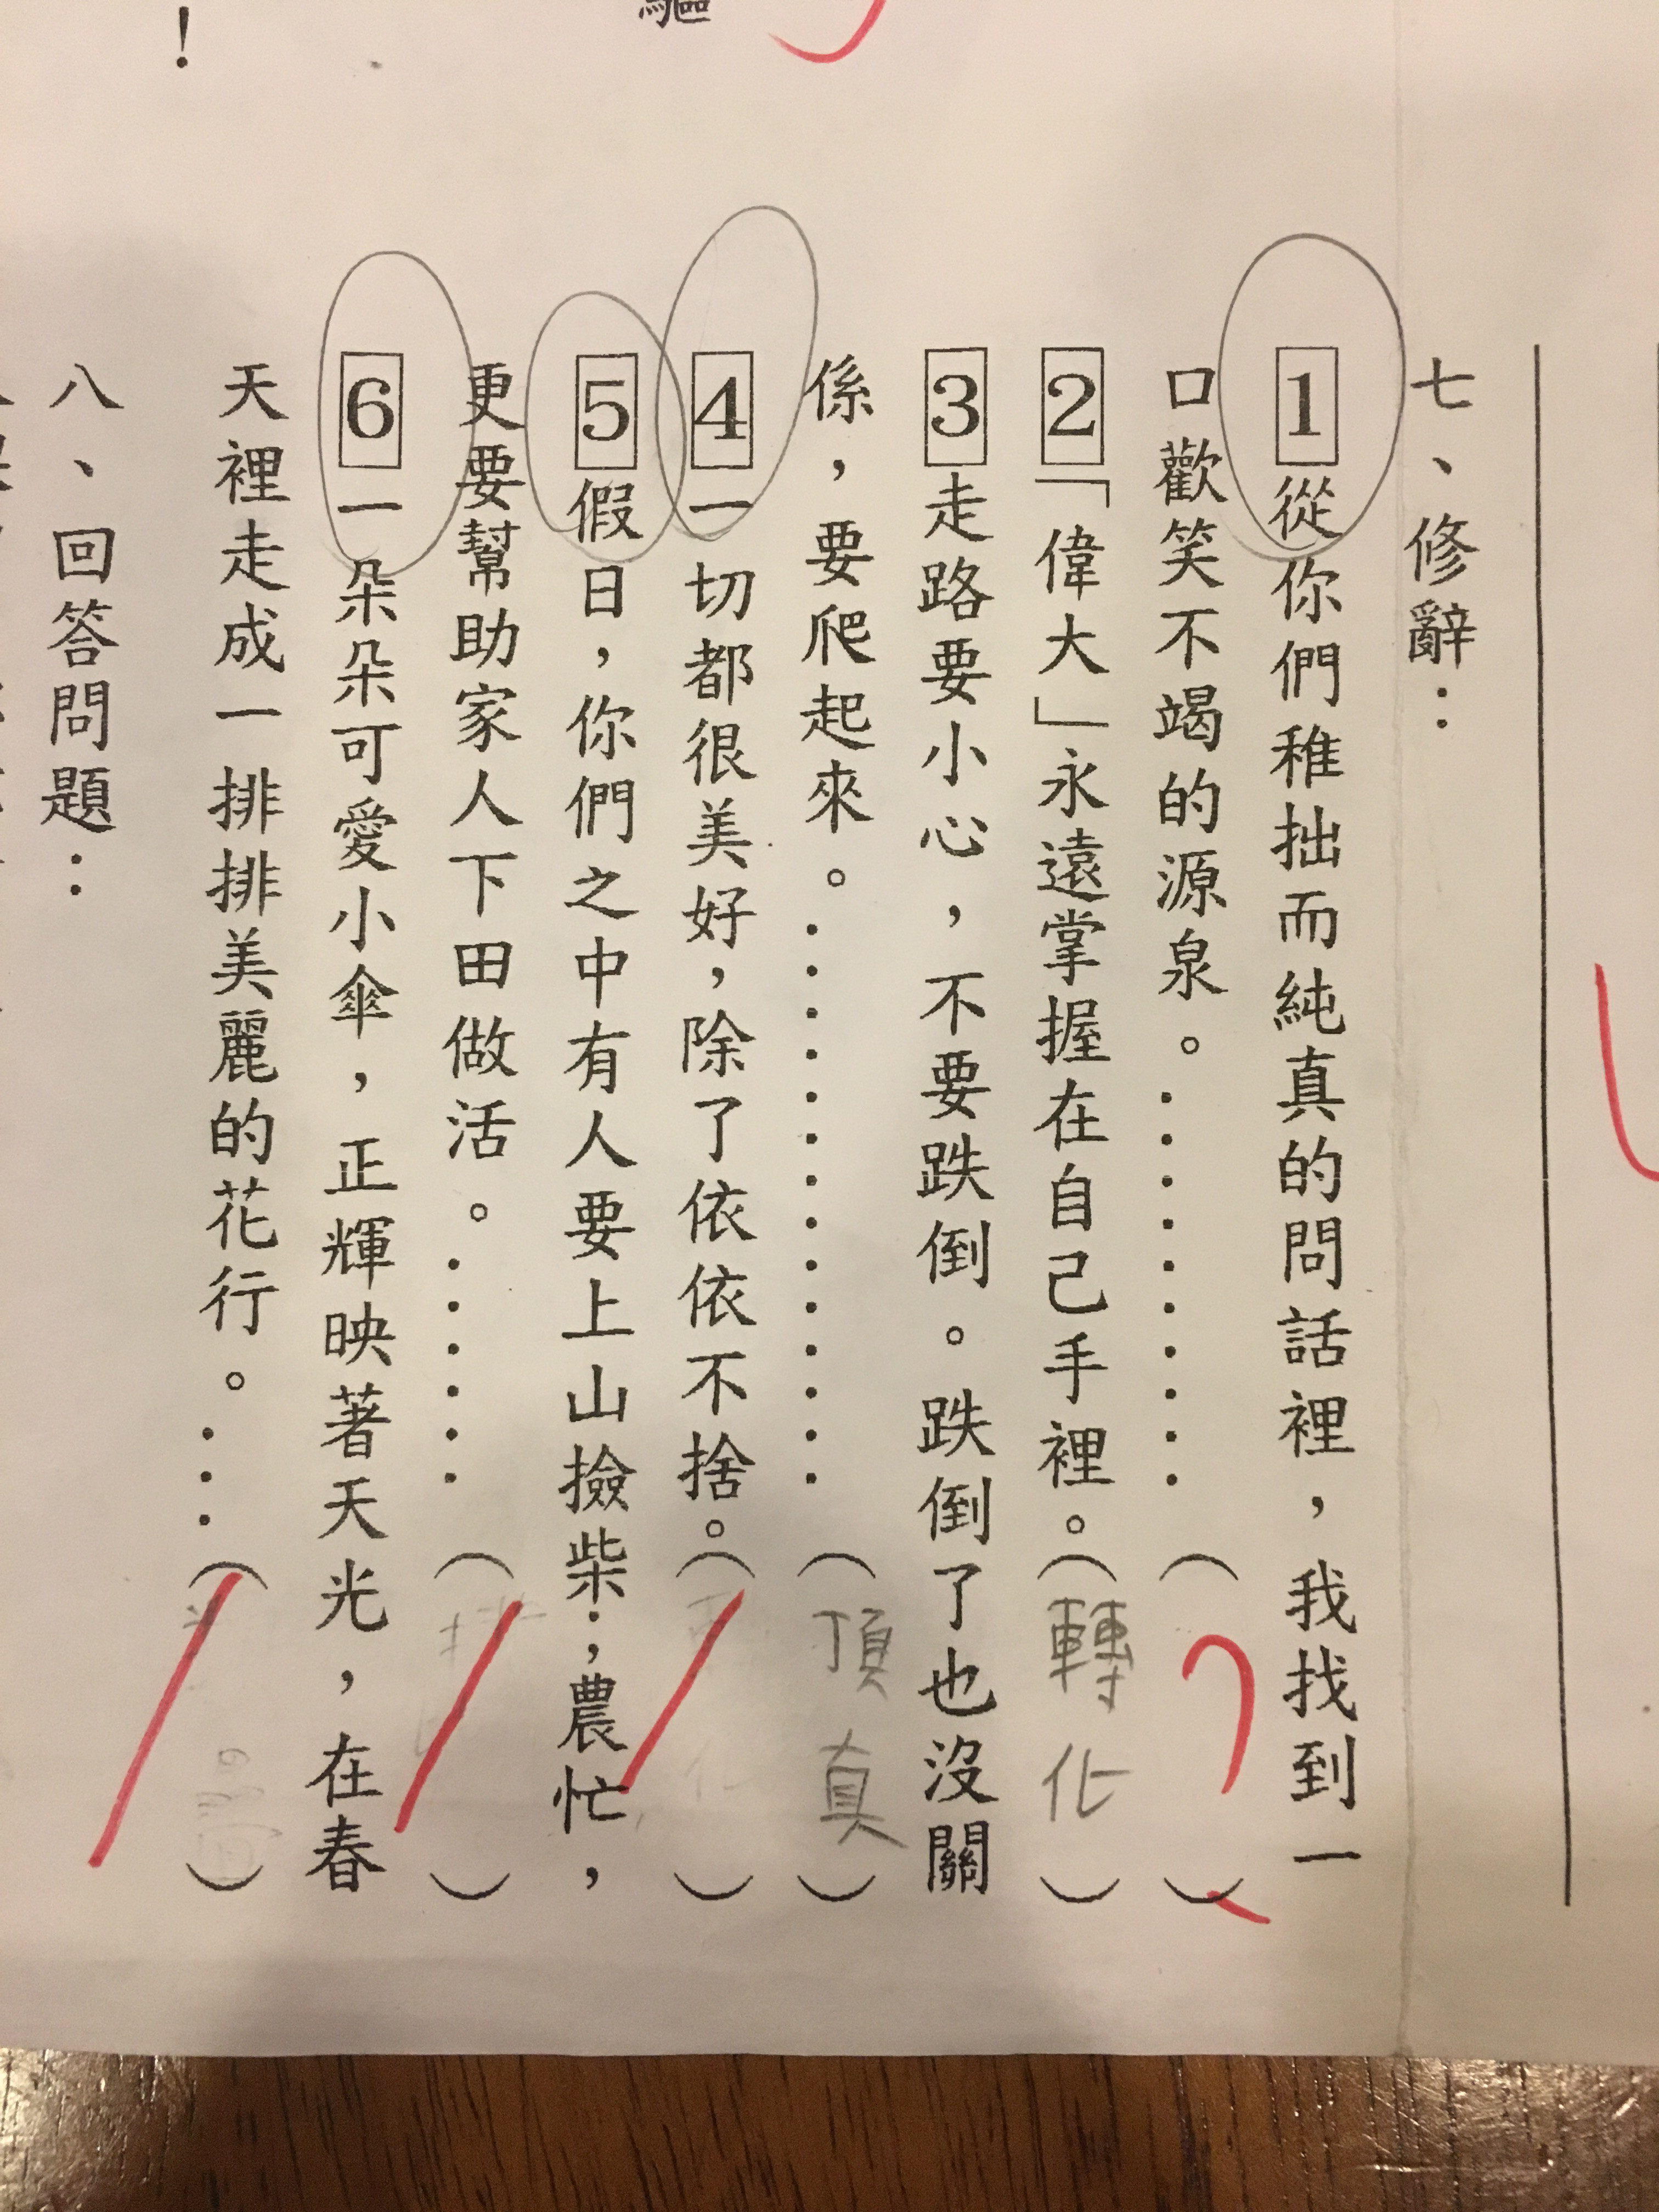 驅
！
七、修辭：
1從你們稚拙而純真的問話裡，我找到一
口歡笑不竭的源泉。…………（　）
2「偉大」永遠掌握在自己手裡。（轉化）
3走路要小心，不要跌倒。跌倒了也沒關
係，要爬起來。…………（頂真）
4一切都很美好，除了依依不捨。（　）
5假日，你們之中有人要上山撿柴；農忙，
更要幫助家人下田做活。………（　）
6一朵朵可愛小傘，正輝映著天光，在春
天裡走成一排排美麗的花行。…（　）
八、回答問題：